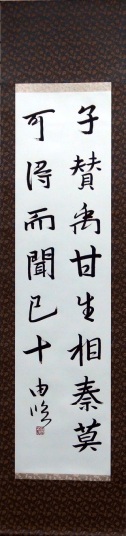 子賛禹甘生相秦莫
可得而聞已十由臨